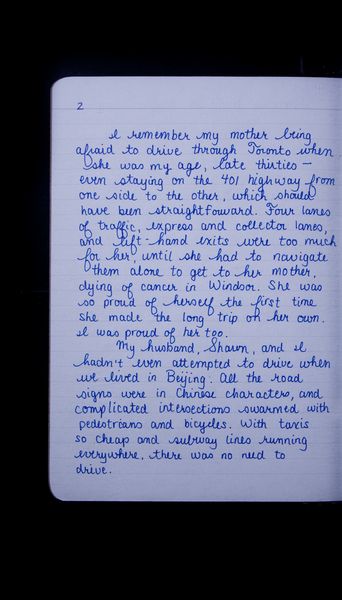 2
I remember my mother being
afraid to drive through Toronto when
she was my age, late thirties –
even staying on the 401 highway from
one side to the other, which should
have been straightforward. Four lanes
of traffic, express and collector lanes,
and left-hand exits were too much
for her, until she had to navigate
them alone to get to her mother,
dying of cancer in Windsor. She was
so proud of herself the first time
she made the long trip on her own.
I was proud of her too.
My husband, Shawn, and I
hadn't even attempted to drive when
we lived in Beijing. All the road
signs were in Chinese characters, and
complicated intersections swarmed with
pedestrians and bicycles. With taxis
so cheap and subway lines running
everywhere, there was no need to
drive.